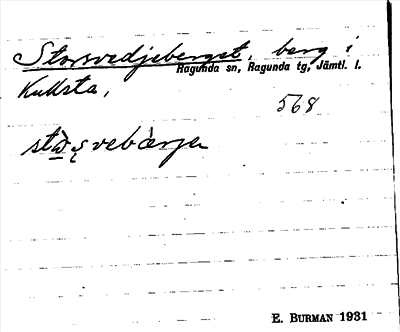 Storsvedjeberget, berg i
Ragunda sn, Ragunda tg, Jämtl. l.
Kullsta,
568
E. BURMAN 1931